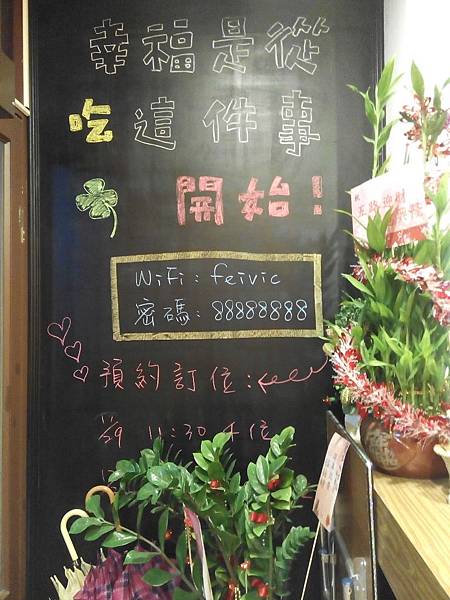 幸福是從
吃這件事
開始!
WiFi: feivic
密碼: 88888888
預約訂位:
1/9 11:30 4位